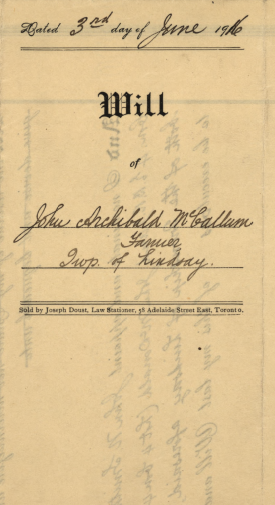 Dated 3rd day of June 1916
Will
of
John Archibald McCallum
Farmer
Twp. of Lindsay.
Sold by Joseph Doust, Law Stationer, 58 Adelaide Street East, Toronto.